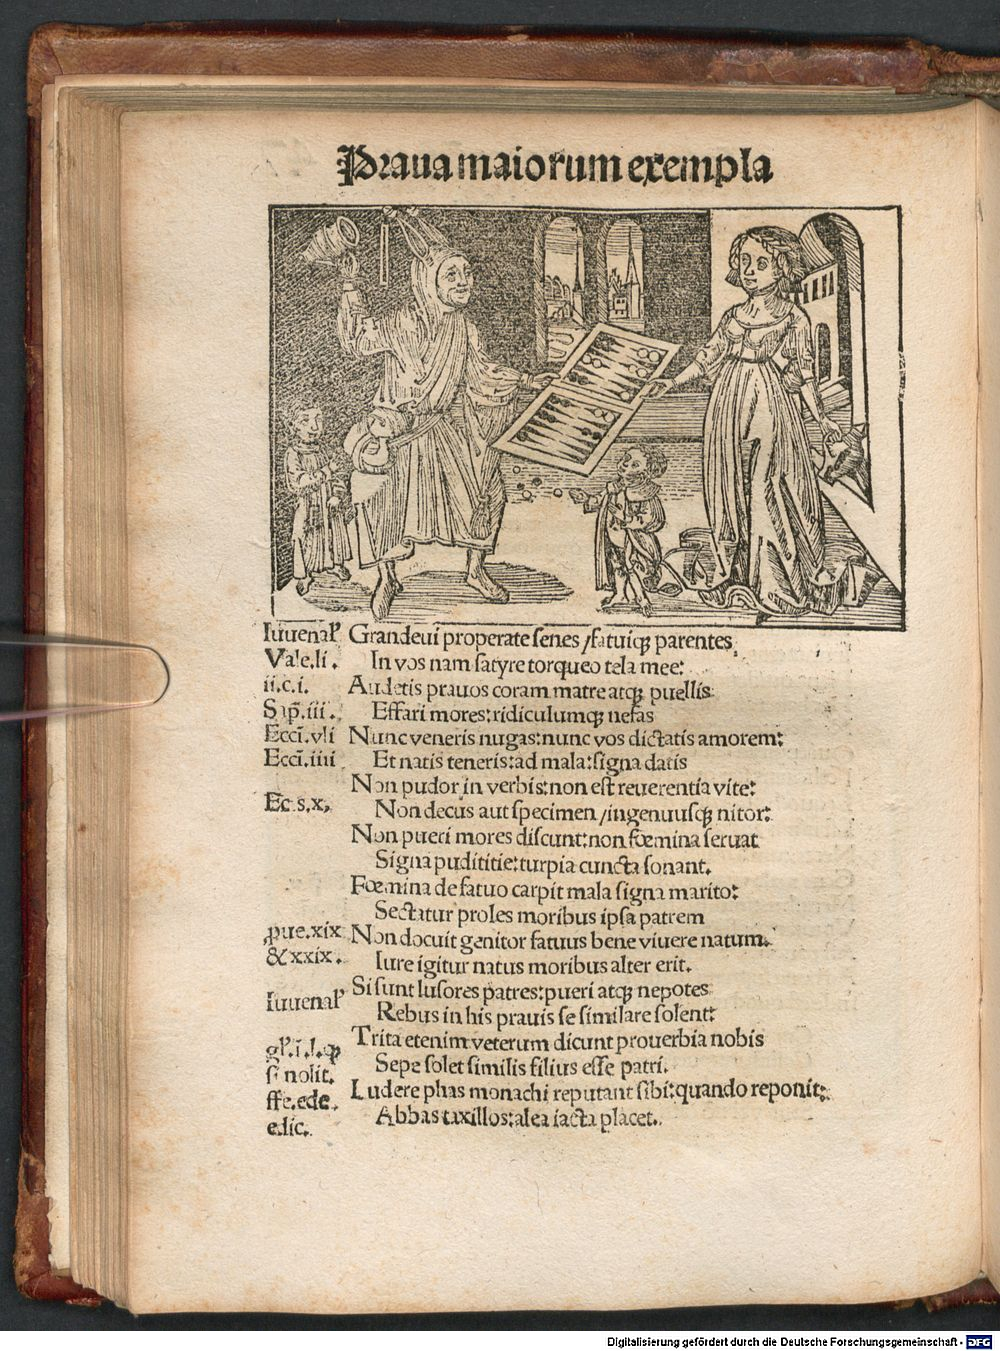 Praua maiorum exempla
Iuuenaľ
Vale.li.
ii.c.i.
Sap̄.iii.
Eccī.vli
Eccī.iiii
Ec.s.x.
ꝓue.xix
&xxix.
Iuuenaľ
si nolit.
ffe.ede.
edic.
Grandeui properate senes /fatuiqꝫ parentes
In vos nam satyre torqueo tela mee:
Audetis prauos coram matre atqꝫ puellis
Effari mores:ridiculumqꝫ nefas
Nunc veneris nugas:nunc vos dictatis amorem:
Et natis teneris:ad mala:signa datis
Non pudor in verbis:non est reuerentia vite:
Non decus aut specimen /ingenuusqꝫ nitor:
Non pueri mores discunt:non fœmina seruat
Signa pudititie:turpia cuncta sonant.
Fœmina de fatuo carpit mala signa marito:
Sectatur proles moribus ipsa patrem
Non docuit genitor fatuus bene viuere natum.
Iure igitur natus moribus alter erit.
Si sunt lusores patres:pueri atqꝫ nepotes
Rebus in his prauis se similare solent:
Trita etenim veterum dicunt prouerbia nobis
Sepe solet similis filius esse patri.
Ludere phas monachi reputant sibi:quando reponit:
Abbas taxillos:alea iacta placet.
Digitalisierung gefördert durch die Deutsche Forschungsgemeinschaft - DFG